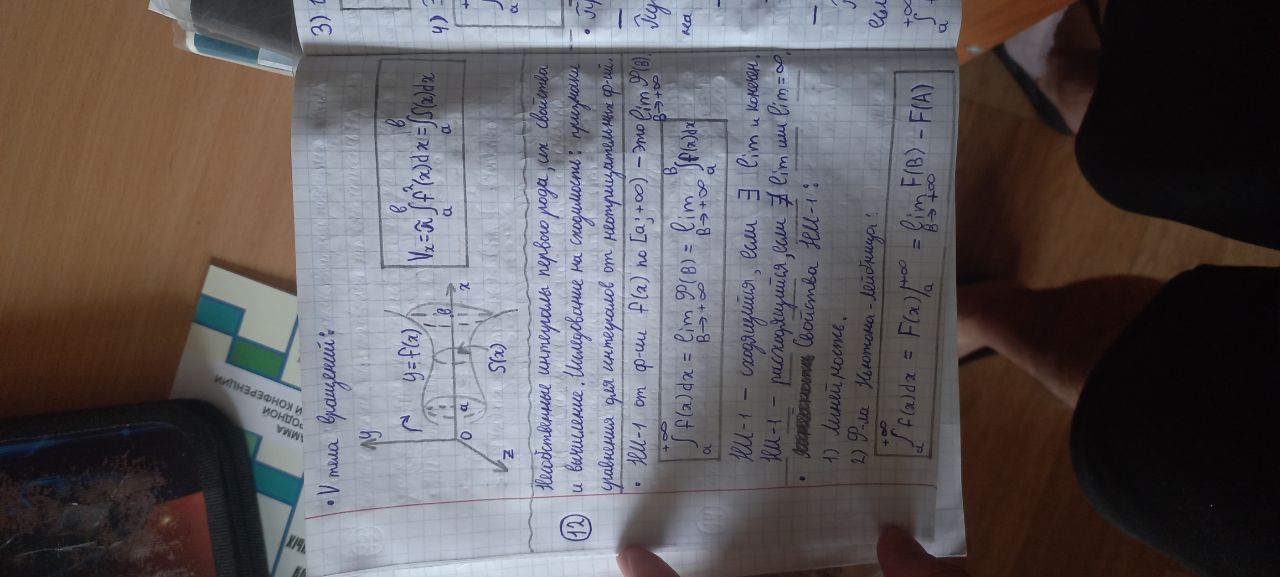 • V тела вращений:
y
y = f(x)
a
b
x
0
z
S(x)
Vₓ = π∫ₐᵇ f²(x)dx = ∫ₐᵇ S(x)dx
12
Несобственные интегралы первого рода, их свойства
и вычисление. Исследование на сходимость: признаки
сравнения для интегралов от неотрицательных ф-ий.
• НИ-1 от ф-ии f(x) по [a; +∞) - это lim B→+∞ φ(B).
∫ₐ⁺∞ f(x)dx = lim B→+∞ φ(B) = lim B→+∞ ∫ₐᴮ f(x)dx
НИ-1 - сходящийся, если ∃ lim и конечен.
НИ-1 - расходящийся, если ∄ lim или lim = ∞.
• Свойства НИ-1:
1) Линейность.
2) Ф-ла Ньютона-Лейбница:
∫ₐ⁺∞ f(x)dx = F(x)|ₐ⁺∞ = lim B→+∞ F(B) - F(A)
3)
4)
РОДНОЙ
И КОНФЕРЕНЦИИ